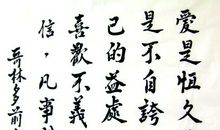 愛是恆久
是不自誇
己的益處
喜歡不義
信,凡事
哥林多前